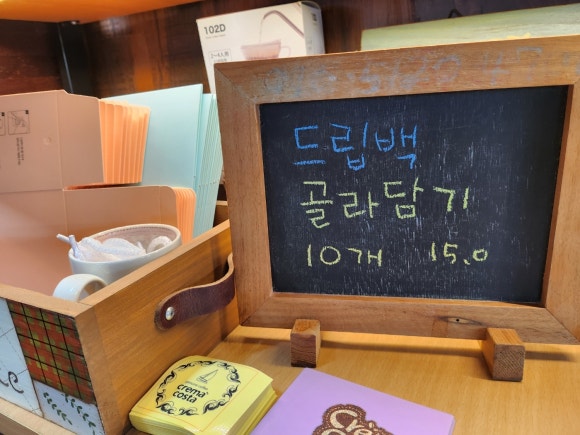 102D
드립백
골라담기
10개 15.0
crema
costa